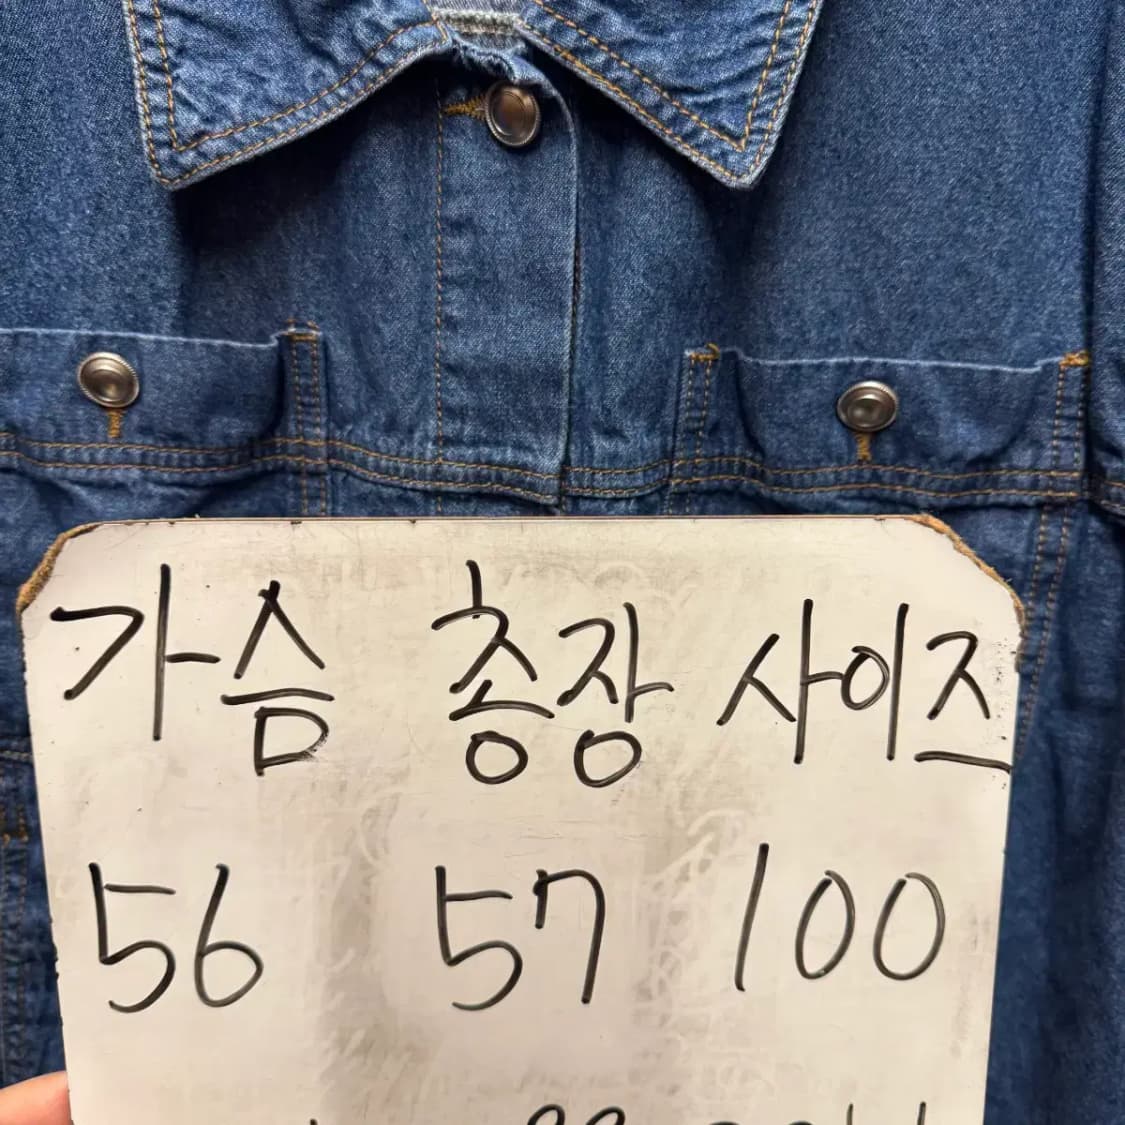 가슴 총장 사이즈
56 57 100